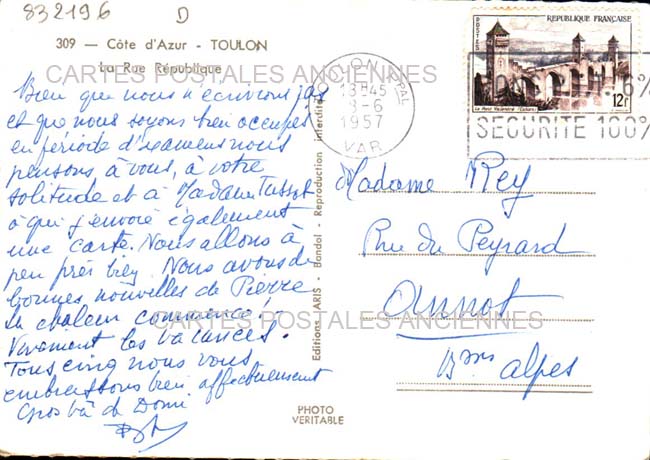 832196 D
309 — Côte d'Azur - TOULON
La Rue République
CARTES POSTALES ANCIENNES
Bien que nous n'écrivions pas
et que nous soyons bien occupés
en période d'examens nous
pensons, à vous, à votre
solitude et à Madame
à qui j'envoie également
une carte. Nous allons à
peu près bien. Nous avons de
bonnes nouvelles de Pierre
La chaleur commence!
Vivement les vacances!
Tous cinq nous vous
embrassons bien affectueusement
Gros de Domi
CARTES POSTALES ANCIENNES
Editions ARIS - Bandol - Reproduction interdite
PHOTO
VERITABLE
REPUBLIQUE FRANÇAISE
POSTES
Le Pont Valentré (Cahors)
12F
TOULON PPAL
13H45
8-6
1957
VAR
6%
SECURITE 100%
Madame Rey
Rue du Peyrard
Annot
Bses alpes